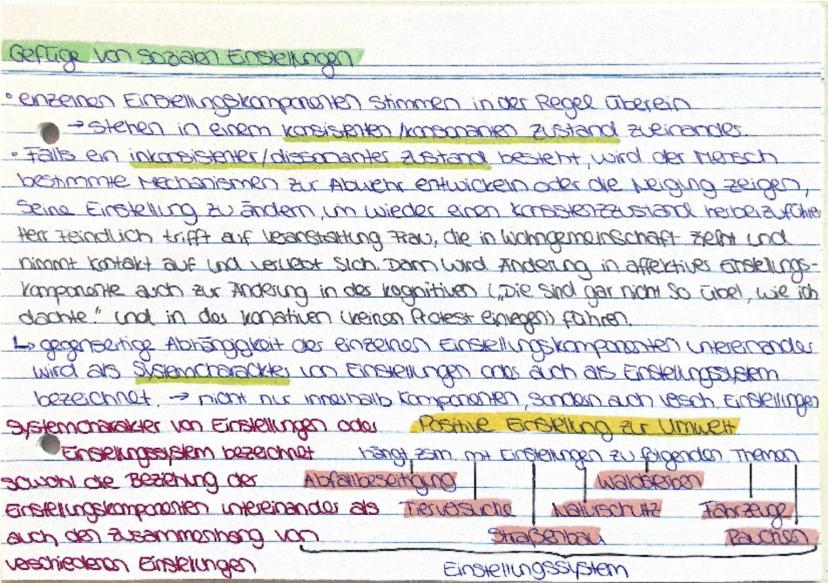 Gefüge von sozialen Einstellungen
• einzelnen Einstellungskomponenten stimmen in der Regel überein
→ stehen in einem konsistenten/konsonanten Zustand zueinander.
• Falls ein inkonsistenter/dissonanter Zustand besteht, wird der Mensch
bestimmte Mechanismen zur Abwehr entwickeln oder die Neigung zeigen,
seine Einstellung zu ändern, um wieder einen Konsistenzzustand herbeizuführen
Herr Feindlich trifft auf Veranstaltung Frau, die in Wohngemeinschaft zieht und
nimmt Kontakt auf und verliebt sich. Dann wird Änderung in affektiver Einstellungs-
komponente auch zur Änderung in der kognitiven („Die sind gar nicht so übel, wie ich
dachte." und in der konativen (keinen Protest einlegen) führen.
↳ gegenseitige Abhängigkeit der einzelnen Einstellungskomponenten untereinander
wird als Systemcharakter von Einstellungen oder auch als Einstellungssystem
bezeichnet. → nicht nur innerhalb Komponenten, sondern auch versch. Einstellungen
Systemcharakter von Einstellungen oder
Einstellungssystem bezeichnet
sowohl die Beziehung der
Einstellungskomponenten untereinander als
auch den Zusammenhang von
verschiedenen Einstellungen
Positive Einstellung zur Umwelt
hängt zsm. mit Einstellungen zu folgenden Themen
Abfallbeseitigung Waldsterben
Tierversuche Naturschutz Fahrzeuge
Straßenbau Rauchen
Einstellungssystem